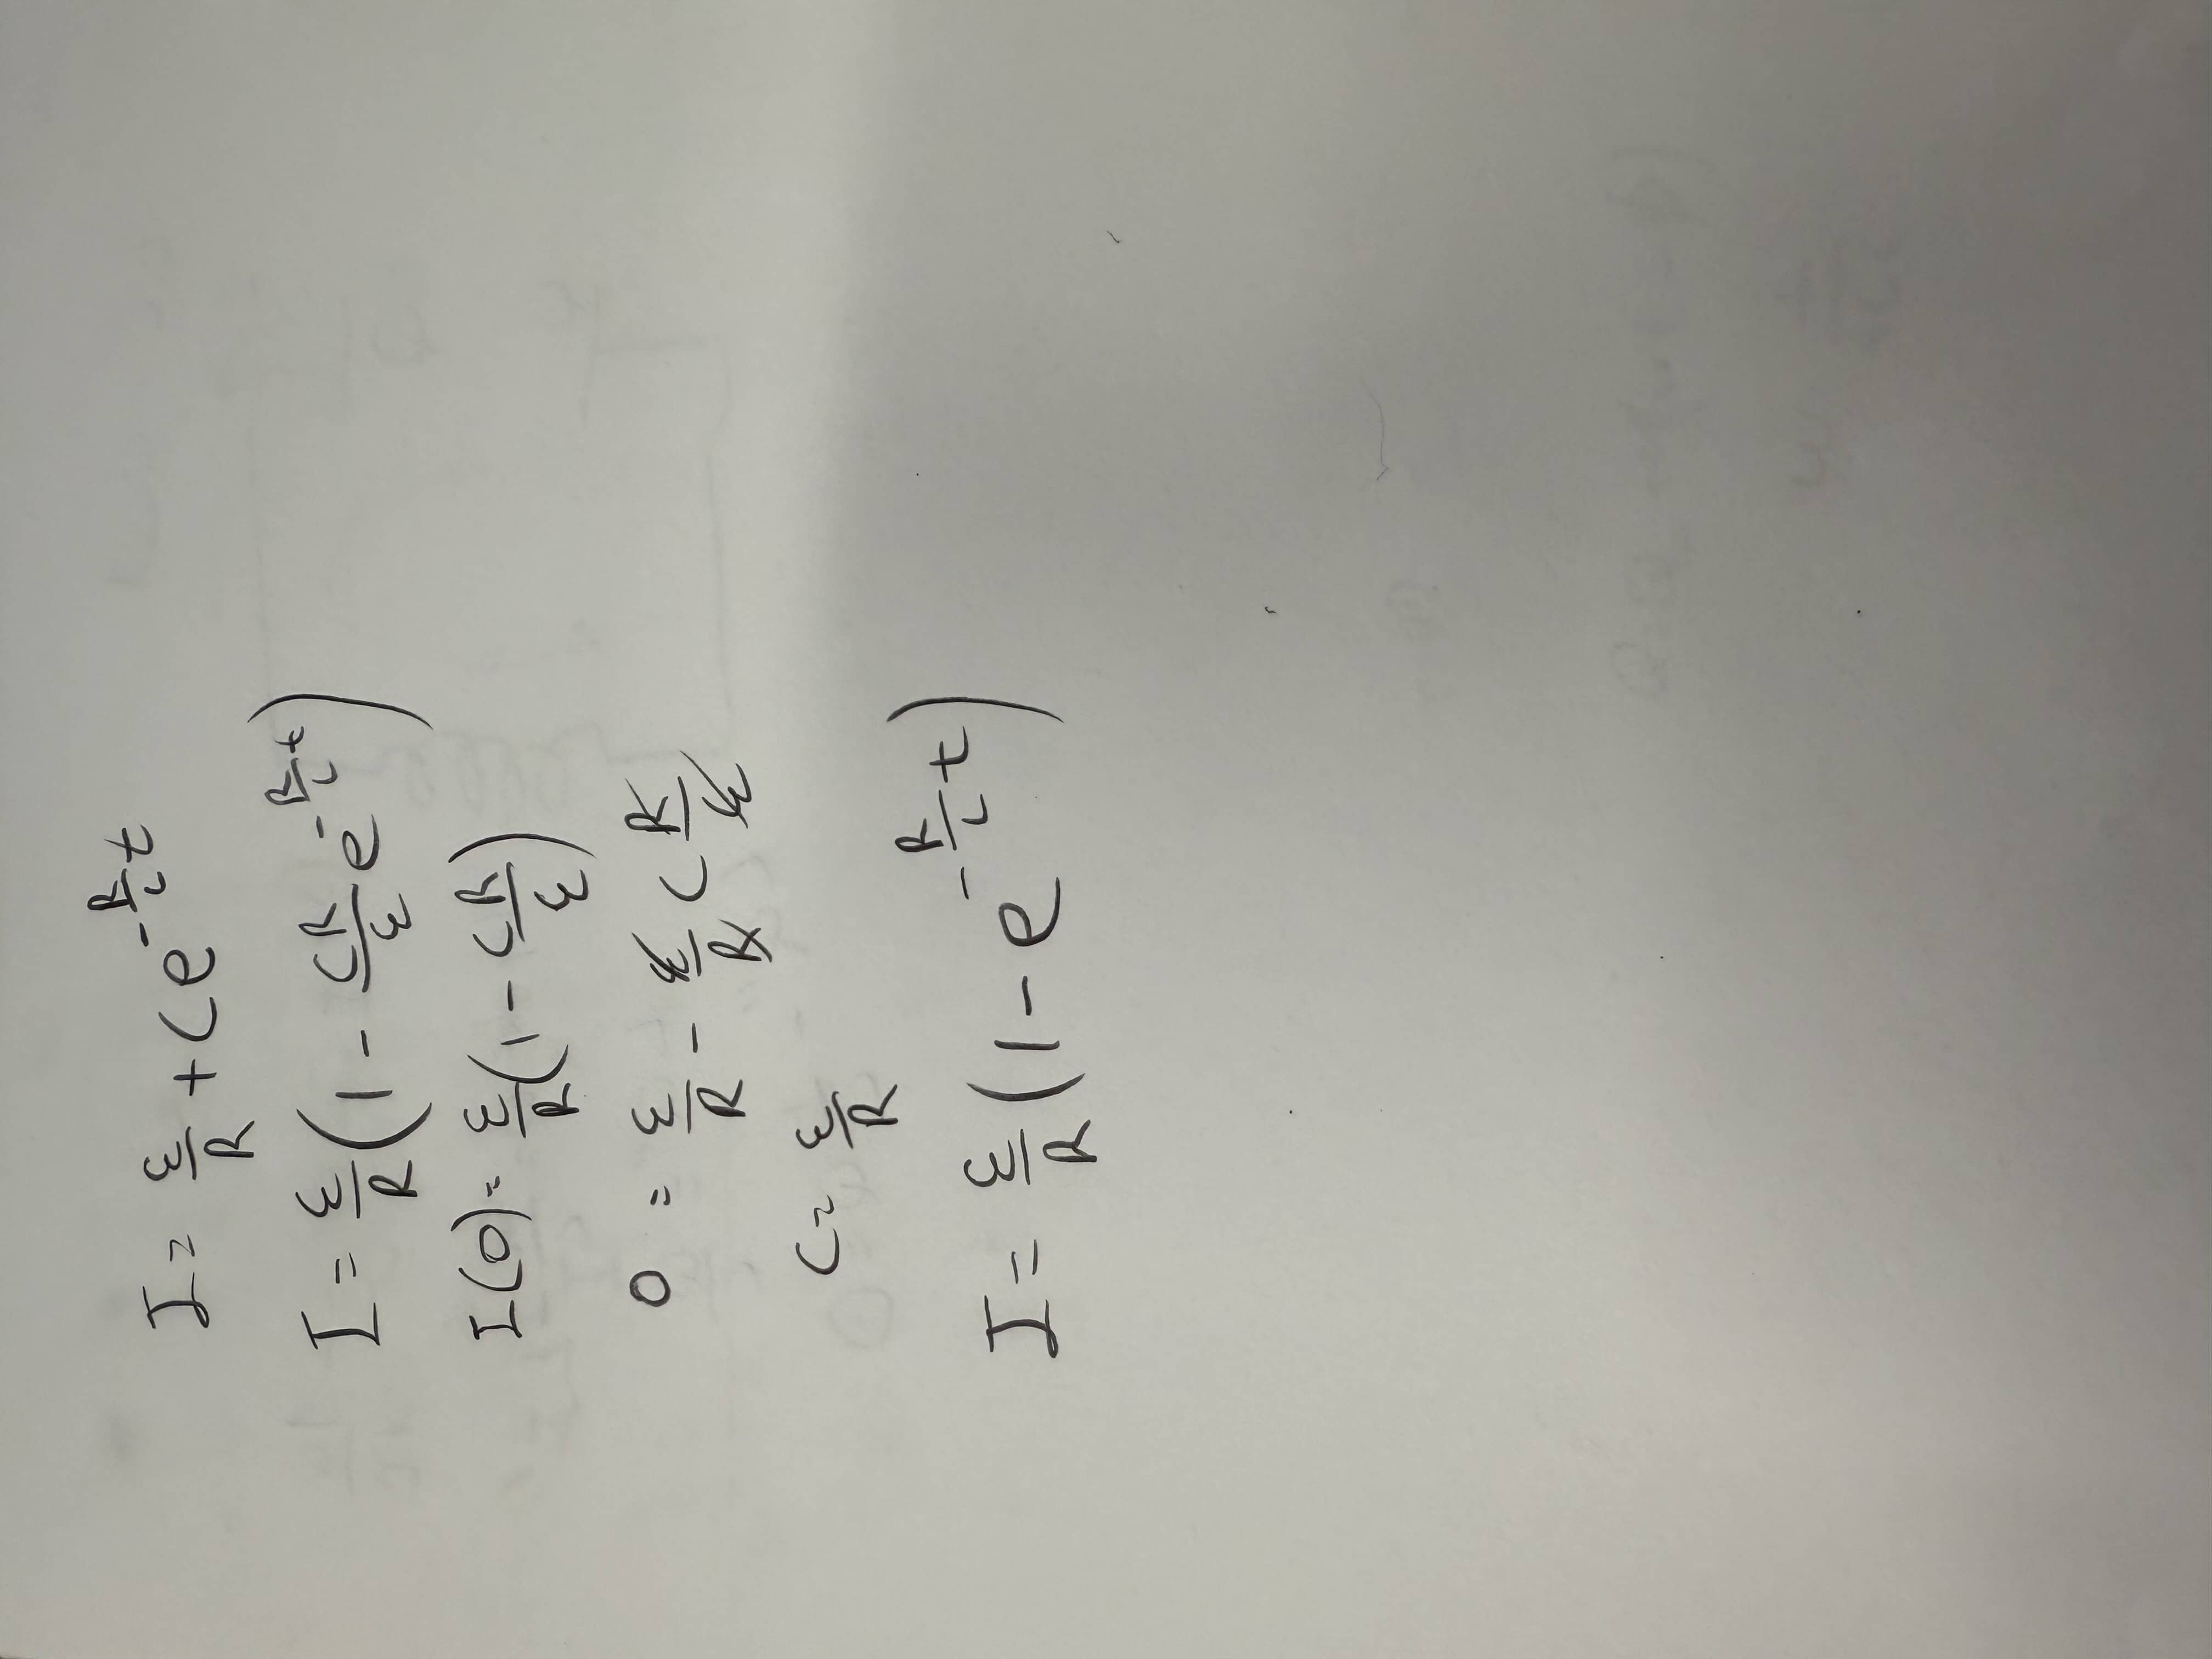 I = ε/R + Ce^(-R/L t)
I = ε/R (1 - CR/ε e^(-R/L t))
I(0) = ε/R (1 - CR/ε)
0 = ε/R - ε/R C R/ε
C = ε/R
I = ε/R (1 - e^(-R/L t))